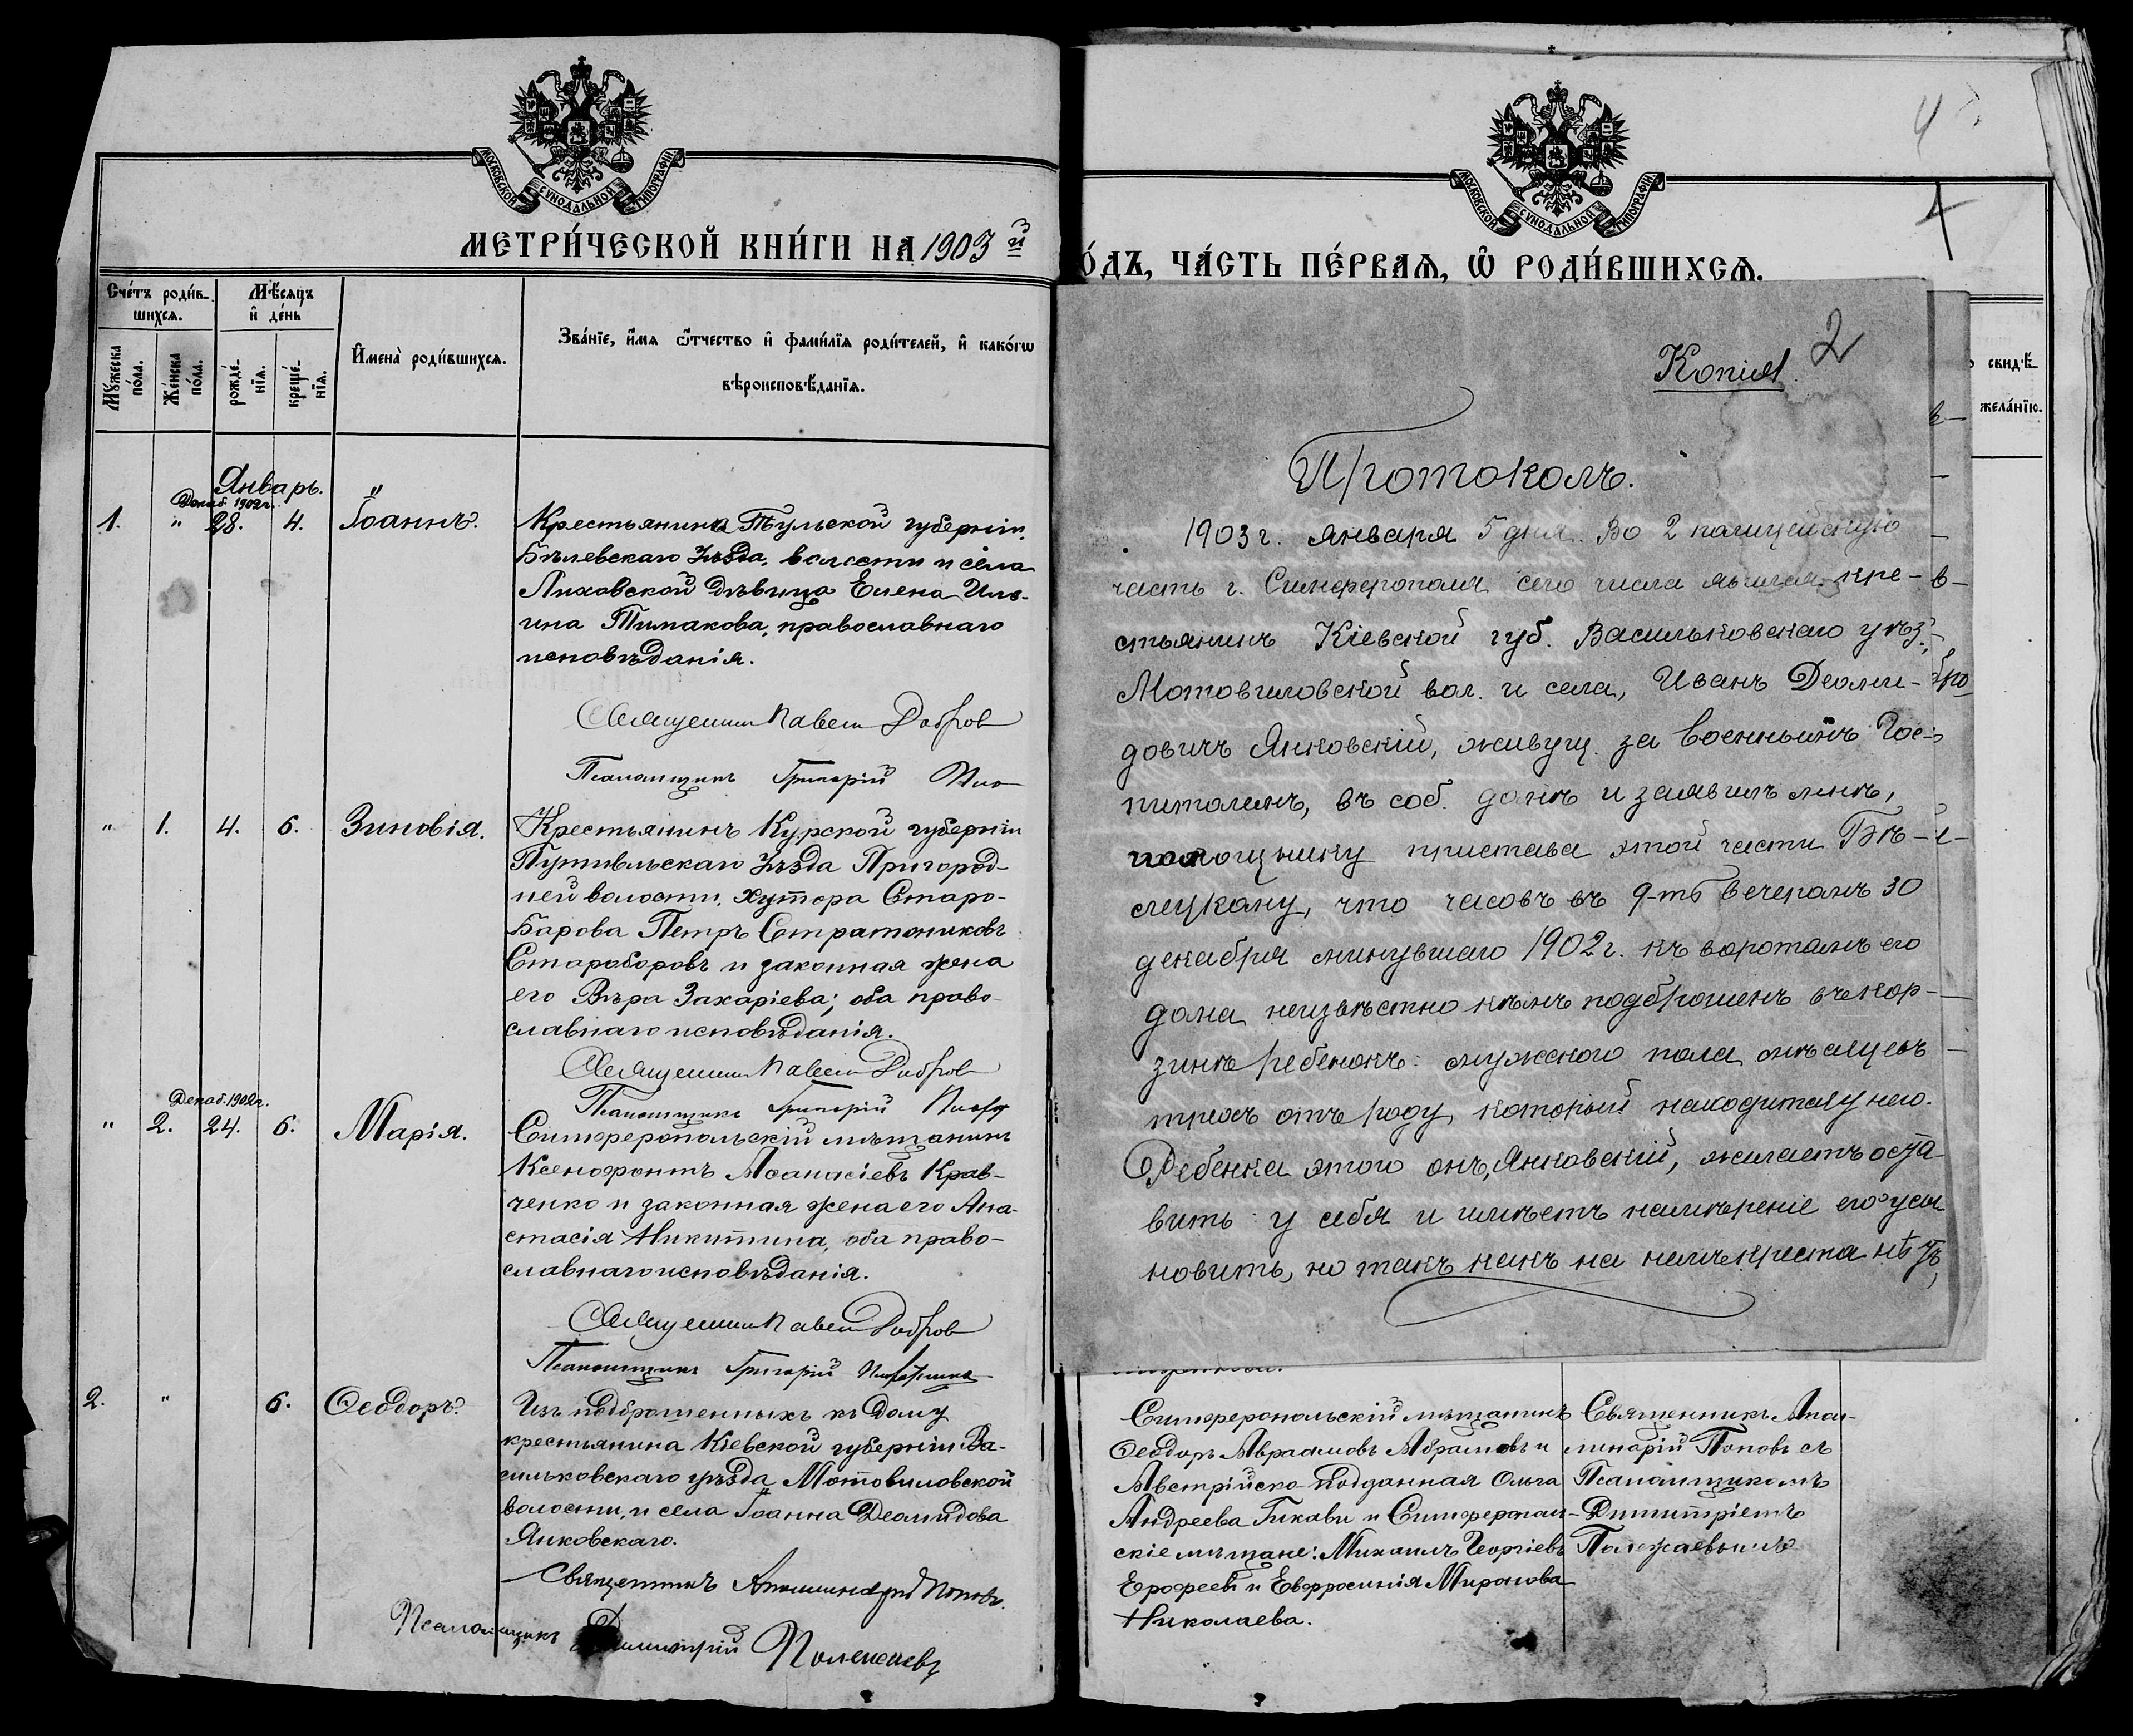 МОСКОВСКОЙ СУНОДАЛЬНОЙ ТИПОГРАФІИ
МЕТРИ́ЧЕСКОЙ КНИ́ГИ НА 1903 й
Сче́тъ роди́в-
шихсѧ.
Мѣ́сѧцъ
и҆ де́нь
Мꙋ́жеска
по́ла.
Же́нска
по́ла.
рожде́-
нїѧ.
креще́-
нїѧ.
И҆мена̀ роди́вшихсѧ.
Зва́нїе, и҆́мѧ ѻ҆́тчество и҆ фами́лїѧ роди́телей, и҆ како́гѡ
вѣроисповѣ́данїѧ.
Январь.
Декаб. 1902 г.
1. " 28. 4. Іоаннъ.
Крестьянина Тульской губерніи,
Бѣлевскаго уѣзда, волости и села
Лиховской дѣвица Елена Иль-
ина Тимакова, православнаго
исповѣданія.
Священникъ Павелъ Добров
Псаломщикъ Григорій
" 1. 4. 6. Зиновія.
Крестьянинъ Курской губерніи
Путивльскаго уѣзда Пригород-
ней волости, хутора Старо-
Барова Петръ Стратониковъ
Староборовъ и законная жена
его Вѣра Захаріева; оба право-
славнаго исповѣданія.
Священникъ Павелъ Добров
Псаломщикъ Григорій
Декаб. 1902 г.
" 2. 24. 6. Марія.
Симферопольскій мѣщанинъ
Ксенофонтъ Аѳанасіевъ Крав-
ченко и законная жена его Ана-
стасія Никитина, оба право-
славнаго исповѣданія.
Священникъ Павелъ Добров
Псаломщикъ Григорій
2. " 6. Ѳеодоръ.
Изъ подброшенныхъ къ дому
крестьянина Кіевской губерніи Ва-
сильковскаго уѣзда Мотовиловской
волости, и села Іоанна Деомидова
Янковскаго.
Священникъ Аполлинарій Поповъ.
Псаломщикъ Димитрій Полежаевъ
МОСКОВСКОЙ СУНОДАЛЬНОЙ ТИПОГРАФІИ
4
О́ДЪ, ЧА́СТЬ ПЕ́РВАѦ, Ѡ҆ РОДИ́ВШИХСѦ.
свидѣ-
жела́нїю.
Копія 2
Протоколъ.
1903 г. Января 5 дня. Во 2 полицейскую
часть г. Симферополя сего числа явился кре-
стьянинъ Кіевской губ. Васильковскаго уѣз.,
Мотовиловской вол. и села, Иванъ Деоми-
довичъ Янковскій, живущ. за военнымъ Гос-
питалемъ, въ соб. домѣ и заявилъ мнѣ,
помощнику пристава этой части Бѣ-
слецкому, что часовъ въ 9-ть вечеромъ 30
декабря минувшаго 1902 г. къ воротамъ его
дома неизвѣстно кѣмъ подброшенъ въ кор-
зинѣ ребенокъ мужского пола мѣсяцевъ
трехъ отъ роду, который находится у него.
Ребенка этого онъ, Янковскій, желаетъ оста-
вить у себя и имѣетъ намѣреніе его усы
новить, но такъ какъ на немъ креста нѣтъ,
Симферопольскій мѣщанинъ
Ѳеодоръ Авраамовъ Абрамовъ и
Австрійско-подданная Ольга
Андреева Гикави и Симферополь-
скіе мѣщане: Михаилъ Георгіевъ
Ерофеевъ и Евфросинія Миронова
Николаева.
Священникъ Апол-
линарій Поповъ съ
Псаломщикомъ
Димитріемъ
Полежаевымъ